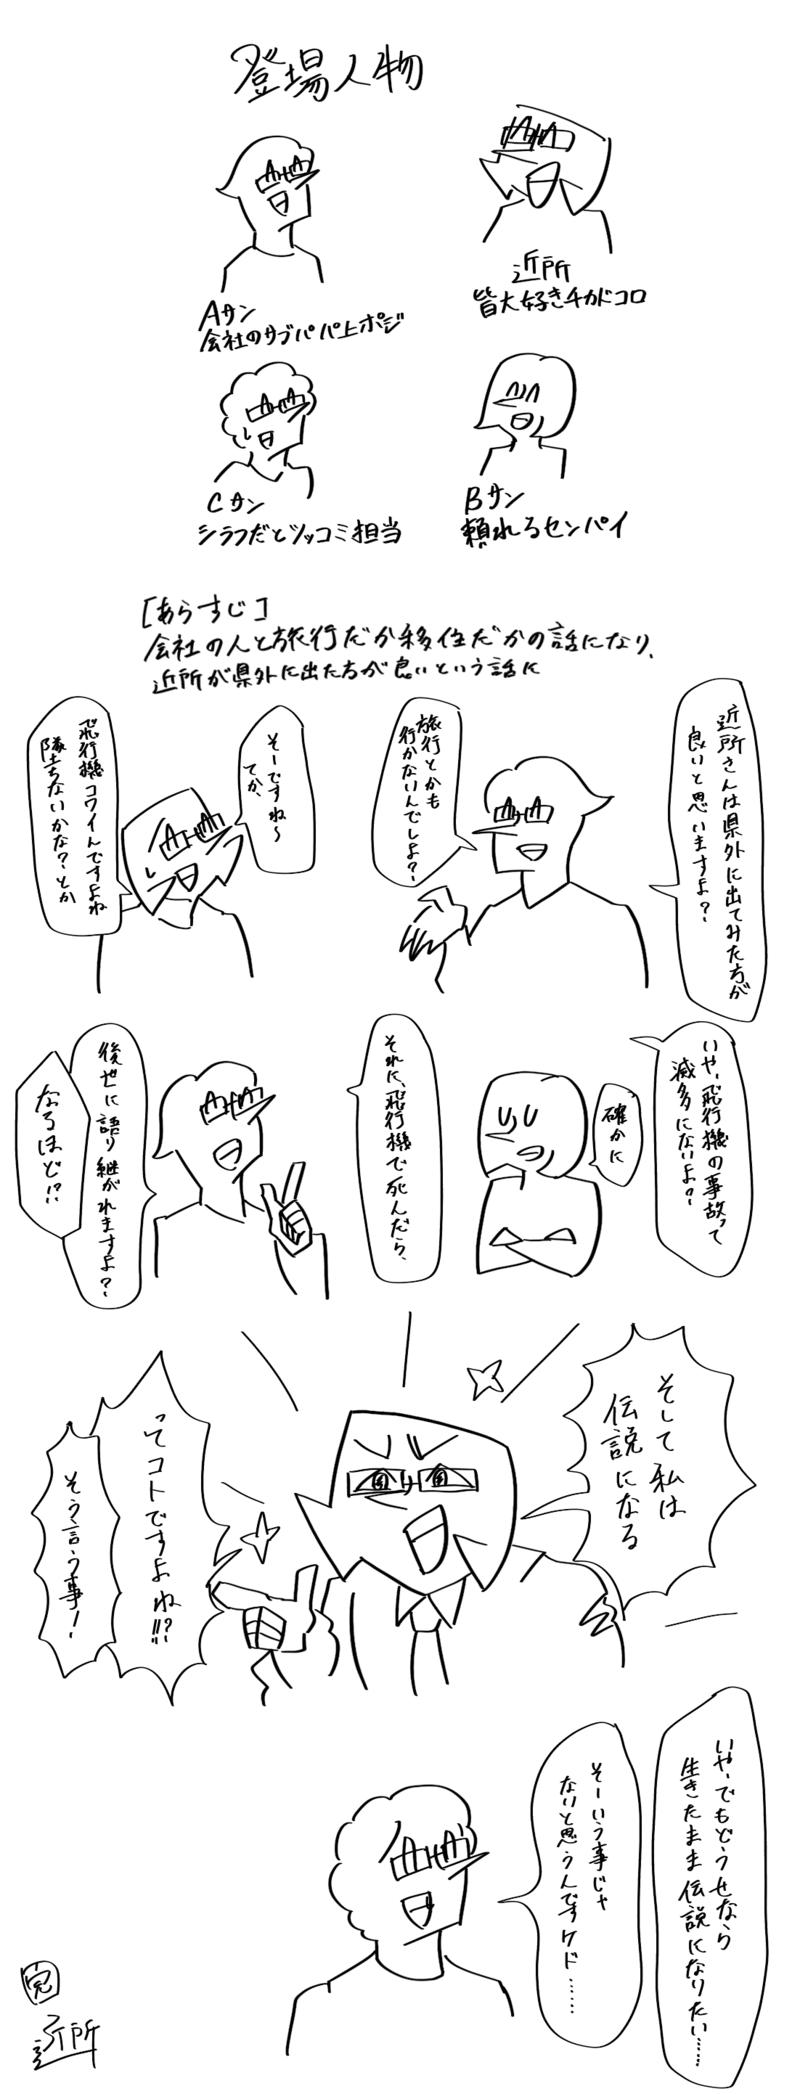 登場人物
Aサン
会社のサブパパ上ポジ
近所
皆大好きチカドコロ
Cサン
シラフだとツッコミ担当
Bサン
頼れるセンパイ
[あらすじ]
会社の人と旅行だか移住だかの話になり、
近所が県外に出た方が良いという話に
近所さんは県外に出てみた方が
良いと思いますよ？
旅行とかも
行かないんでしょ？
そーですね〜
てか、
飛行機コワイんですよね
墜ちないかな？とか
いや、飛行機の事故って
滅多にないよ？
確かに
それに、飛行機で死んだら、
後世に語り継がれますよ？
なるほど!?
そして私は
伝説になる
ってコトですよね!!?
そう言う事！
いや、でもどうせなら
生きたまま伝説になりたい……
そーいう事じゃ
ないと思うんですケド……
完
近所